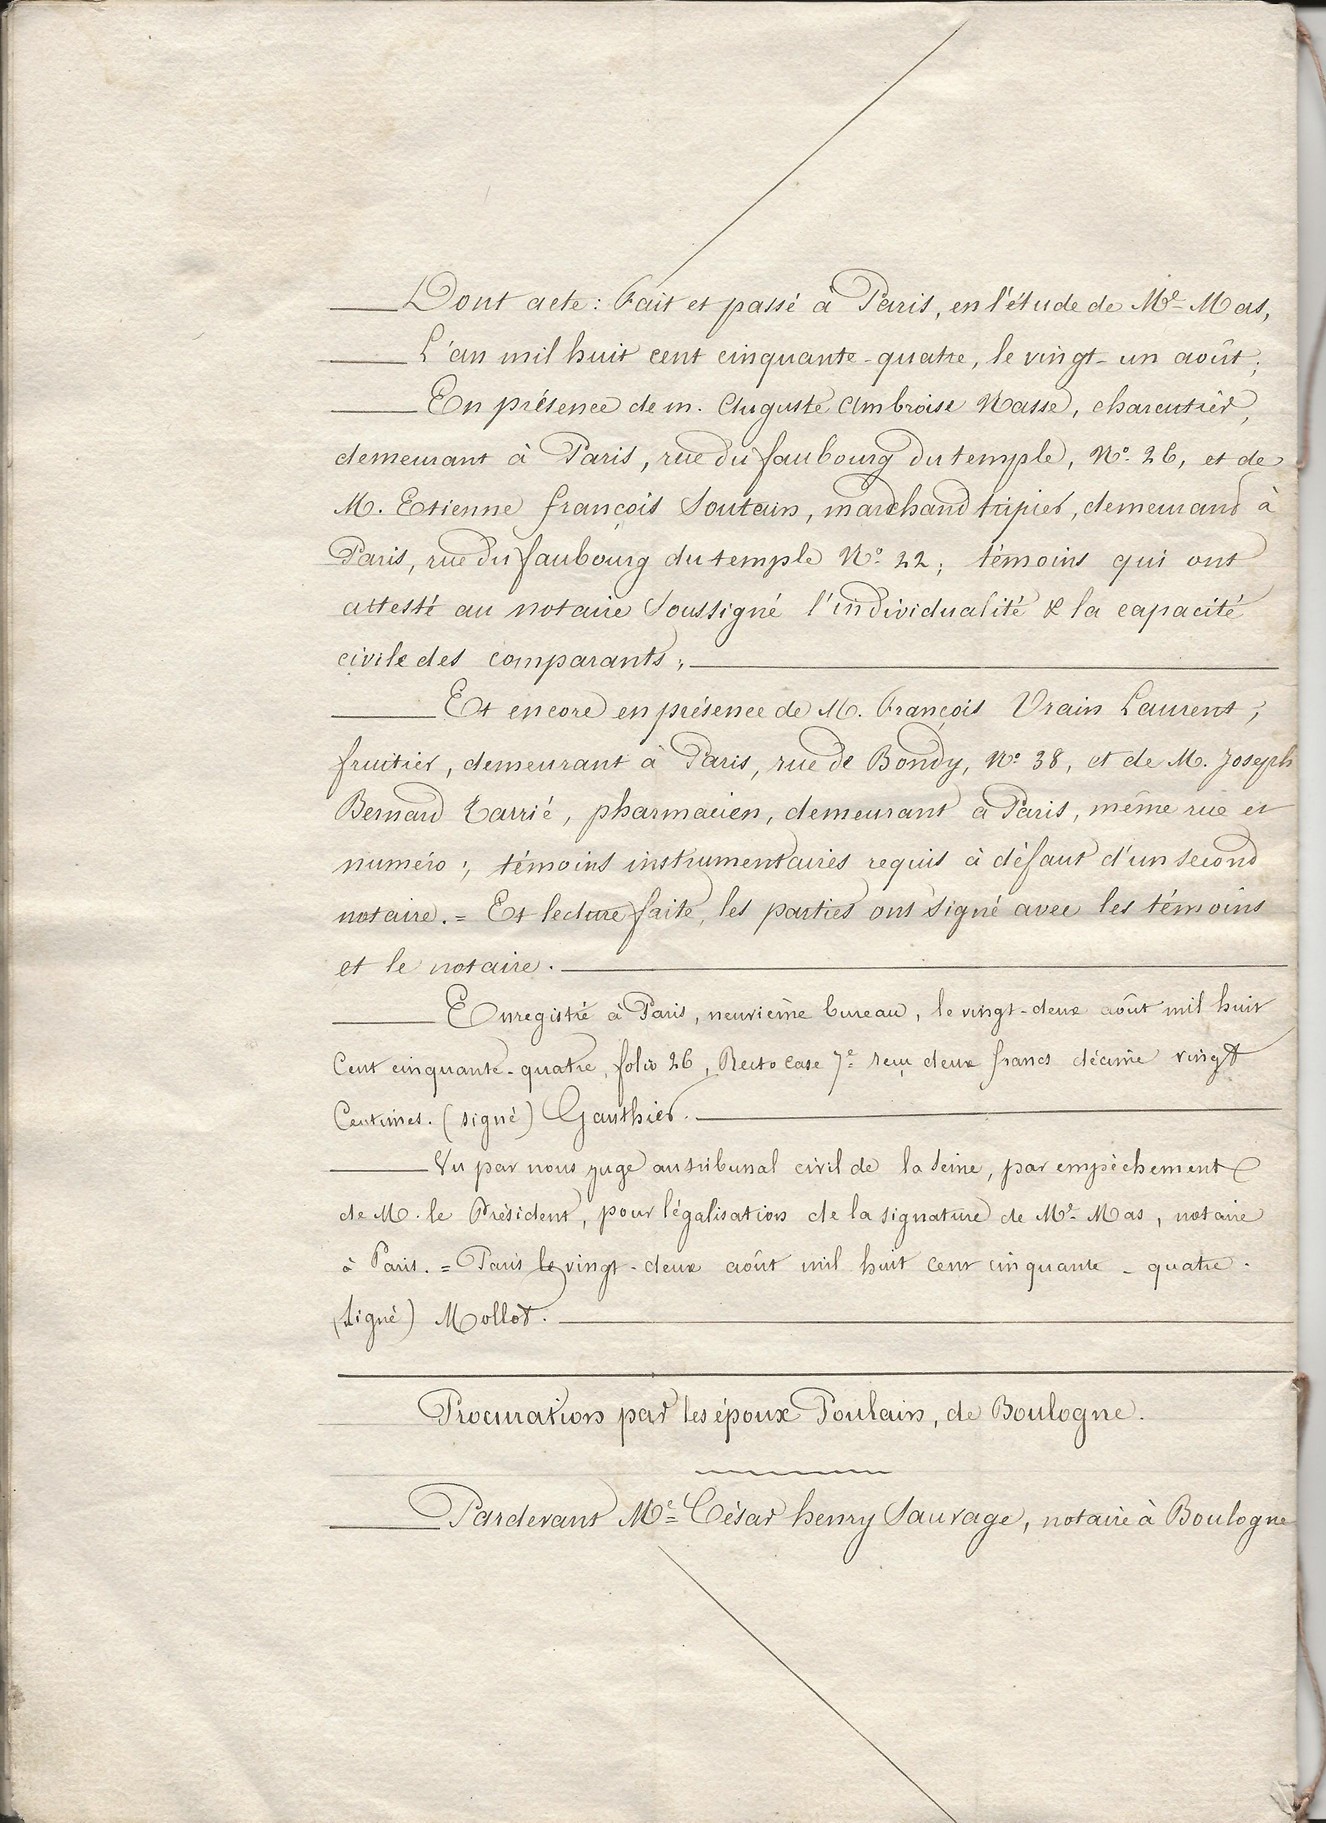 Dont acte : Fait et passé à Paris, en l'étude de Me Mas,
L'an mil huit cent cinquante-quatre, le vingt-un août ;
En présence de m. Auguste Ambroise Nasse, charcutier,
demeurant à Paris, rue du faubourg du temple, No. 26, et de
M. Etienne françois Soutain, marchand tripier, demeurant à
Paris, rue du faubourg du temple No. 22 ; témoins qui ont
attesté au notaire soussigné l'individualité & la capacité
civile des comparants ;
Et encore en présence de M. François Vrain Laurent,
fruitier, demeurant à Paris, rue de Bondy, No 38, et de M. Joseph
Bernard Tarrié, pharmacien, demeurant à Paris, même rue et
numéro ; témoins instrumentaires requis à défaut d'un second
notaire. = Et lecture faite, les parties ont signé avec les témoins
et le notaire.
Enregistré à Paris, neuvième bureau, le vingt-deux août mil huit
Cent cinquante-quatre, folio 26, Recto case 7e reçu deux francs décime vingt
Centimes. (signé) Gauthier.
Vu par nous juge au tribunal civil de la Seine, par empêchement
de M. le Président, pour légalisation de la signature de Me Mas, notaire
à Paris. = Paris le vingt-deux août mil huit cent cinquante-quatre.
(signé) Mollot.
Procuration par les époux Poulain, de Boulogne.
Pardevant Me César henry Sauvage, notaire à Boulogne